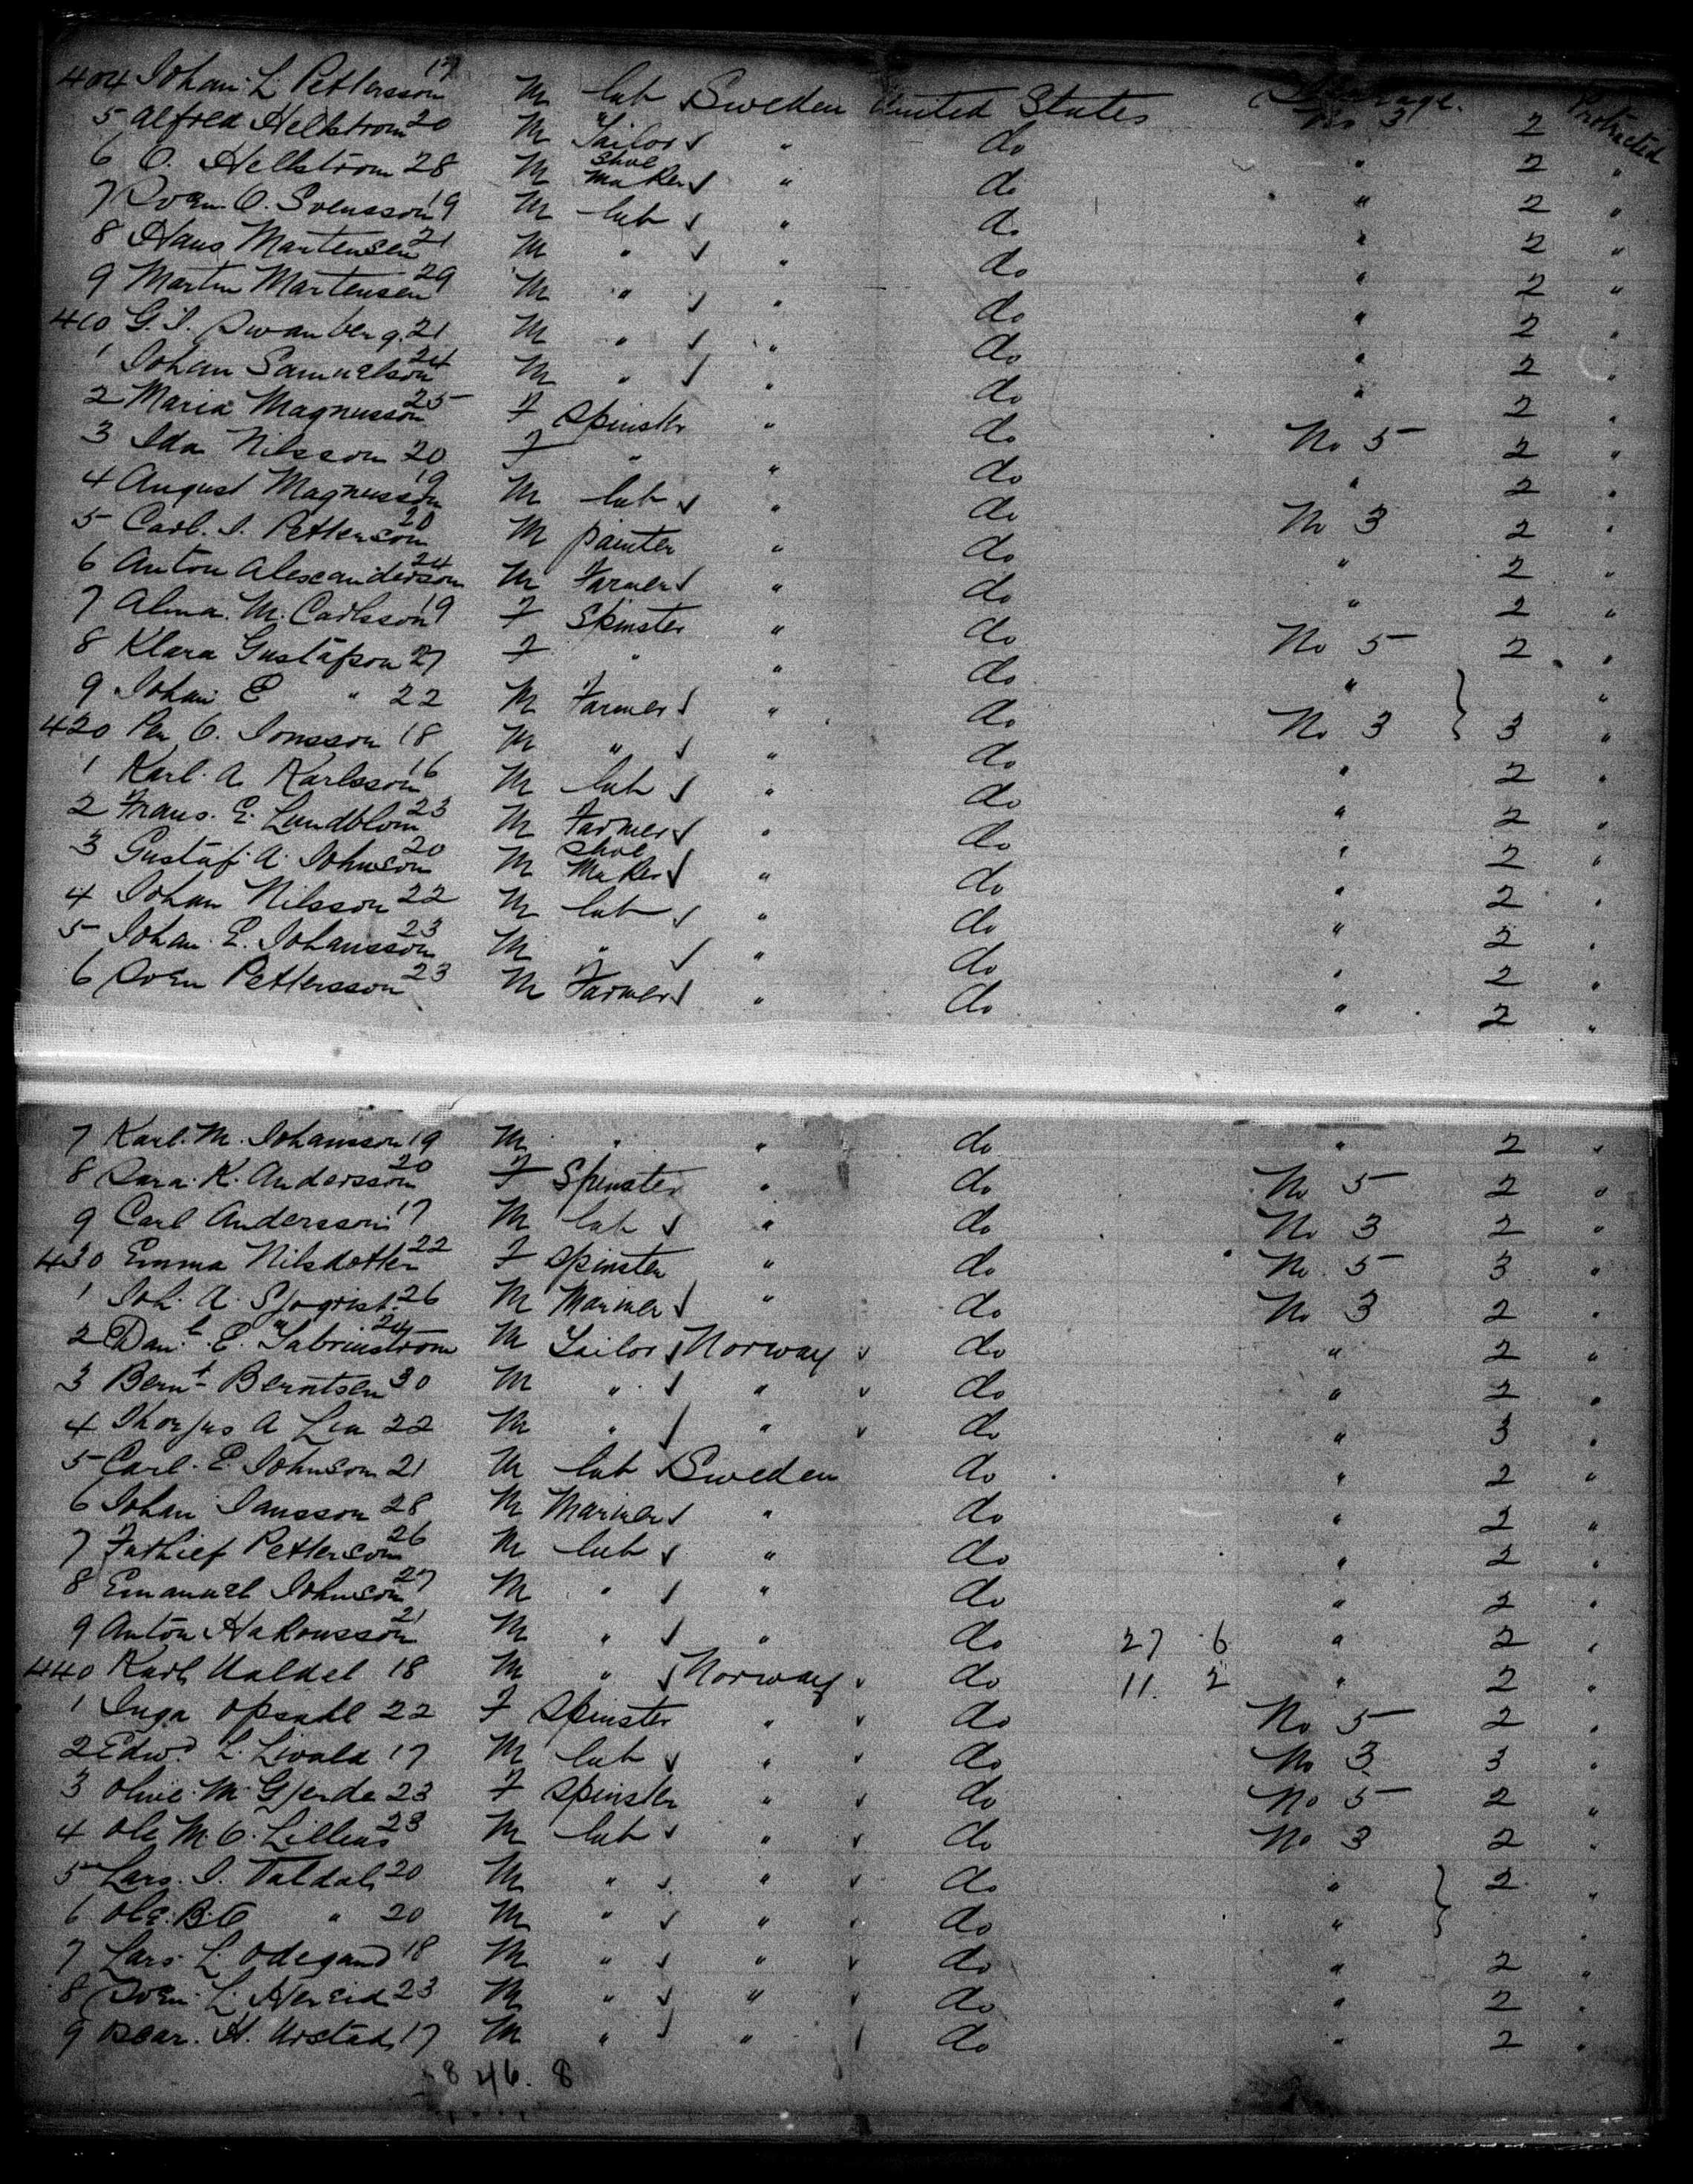 404 Johan L Pettersson 17 M lab Sweden United States Steerage No 3 2 Protracted
5 Alfred Hellstrom 20 M Tailor " do " 2 "
6 O. Hellstrom 28 M Shoe Maker " do " 2 "
7 Sven O. Svensson 19 M lab " do " 2 "
8 Hans Martensen 21 M " " do " 2 "
9 Martin Martensen 29 M " " do " 2 "
410 G. I. Swanberg 21 M " " do " 2 "
1 Johan Samuelson 24 M " " do " 2 "
2 Maria Magnusson 25 F Spinster " do No 5 2 "
3 Ida Nilsson 20 F " " do " 2 "
4 August Magnusson 19 M lab " do No 3 2 "
5 Carl. I. Petterson 20 M painter " do " 2 "
6 Anton Alexanderson 24 M Farmer " do " 2 "
7 Alma. M. Carlsson 19 F Spinster " do No 5 2 "
8 Klara Gustafson 27 F " " do " "
9 Johan E " 22 M Farmer " do No 3 3 "
420 Per O. Jonsson 18 M " " do " 2 "
1 Karl. A Karlsson 16 M lab " do " 2 "
2 Frans. E. Lundblom 23 M Farmer " do " 2 "
3 Gustaf. A. Johnson 20 M Shoe Maker " do " 2 "
4 Johan Nilsson 22 M lab " do " 2 "
5 Johan. E. Johansson 23 M " " do " 2 "
6 Sven Pettersson 23 M Farmer " do " 2 "
7 Karl. M. Johansson 19 M " " do " 2 "
8 Sara. K. Andersson 20 F Spinster " do No 5 2 "
9 Carl Andersson 17 M lab " do No 3 2 "
430 Emma Nilsdotter 22 F Spinster " do No 5 3 "
1 Joh. A. Sjoqrist. 26 M Mariner " do No 3 2 "
2 Danl. E. 24 M Tailor Norway do " 2 "
3 Bernt Berntsen 30 M " " do " 2 "
4 A Lea 22 M " " do " 3 "
5 Carl. E. Johnson 21 M lab Sweden do " 2 "
6 Johan Jansson 28 M Mariner " do " 2 "
7 Petterson 26 M lab " do " 2 "
8 Emanuel Johnson 27 M " " do " 2 "
9 Anton Hakonsson 21 M " " do 27 6 " 2 "
440 Karl 18 M " Norway do 11. 2 " 2 "
1 Inga Opsahl 22 F Spinster " do No 5 2 "
2 Edwd L. 17 M lab " do No 3 3 "
3 Olive. M. Gjerde 23 F Spinster " do No 5 2 "
4 Ole M. O. 23 M lab " do No 3 2 "
5 Lars. I. 20 M " " do " 2 "
6 Ole. B. O " 20 M " " do " "
7 Lars. L. Odegand 18 M " " do " 2 "
8 Sven. L. Hereid 23 M " " do " 2 "
9 Oscar. H. Urstad 17 M " " do " 2 "
8 46. 8